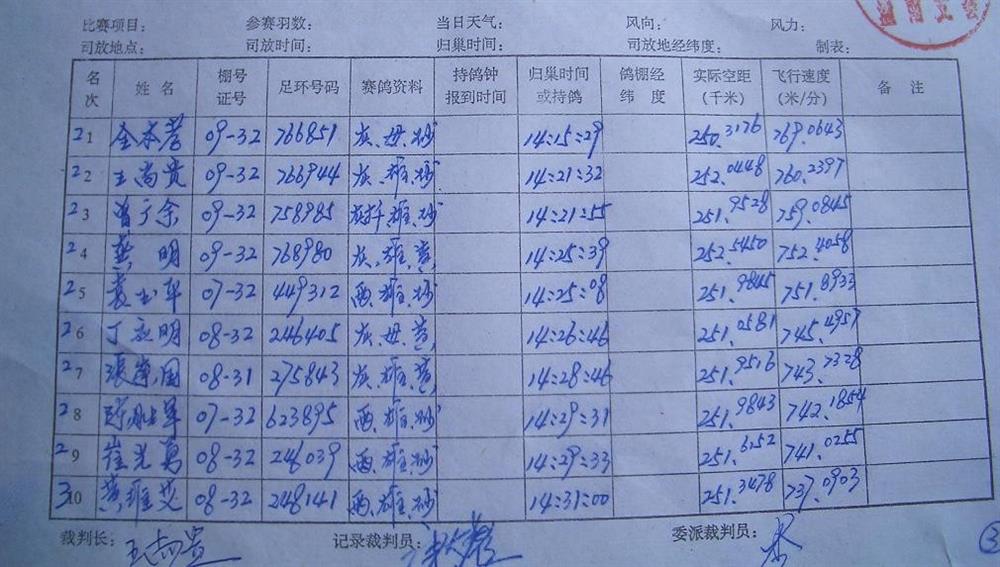 比赛项目： 参赛羽数： 当日天气： 风向： 风力：
司放地点： 司放时间： 归巢时间： 司放地经纬度： 制表：
名次 姓名 棚号证号 足环号码 赛鸽资料 持鸽钟报到时间 归巢时间或持鸽 鸽棚经纬度 实际空距(千米) 飞行速度(米/分) 备注
21 09-32 766851 灰.母.砂 14:15:29 250.3176 769.0643
22 王尚贵 09-32 766944 灰.雄.砂 14:21:32 252.0448 760.2397
23 曾于余 09-32 758985 雄.砂 14:21:55 251.9528 759.0845
24 龚明 09-32 768980 灰.雄.黄 14:25:39 252.5450 752.4058
25 袁玉华 07-32 449312 雨.雄.砂 14:25:08 251.9845 751.8933
26 丁永明 08-32 246405 灰.母.黄 14:26:46 251.0581 745.4957
27 张建国 08-31 275843 灰.雄.黄 14:28:46 251.9516 743.7328
28 07-32 623895 雨.雄.砂 14:29:31 251.9843 742.1854
29 崔光勇 08-32 246039 雨.雄.砂 14:29:33 251.6152 741.0255
30 黄雄艾 08-32 248141 雨.雄.砂 14:31:00 251.3478 737.0903
裁判长：王尚贵 记录裁判员： 委派裁判员： ③